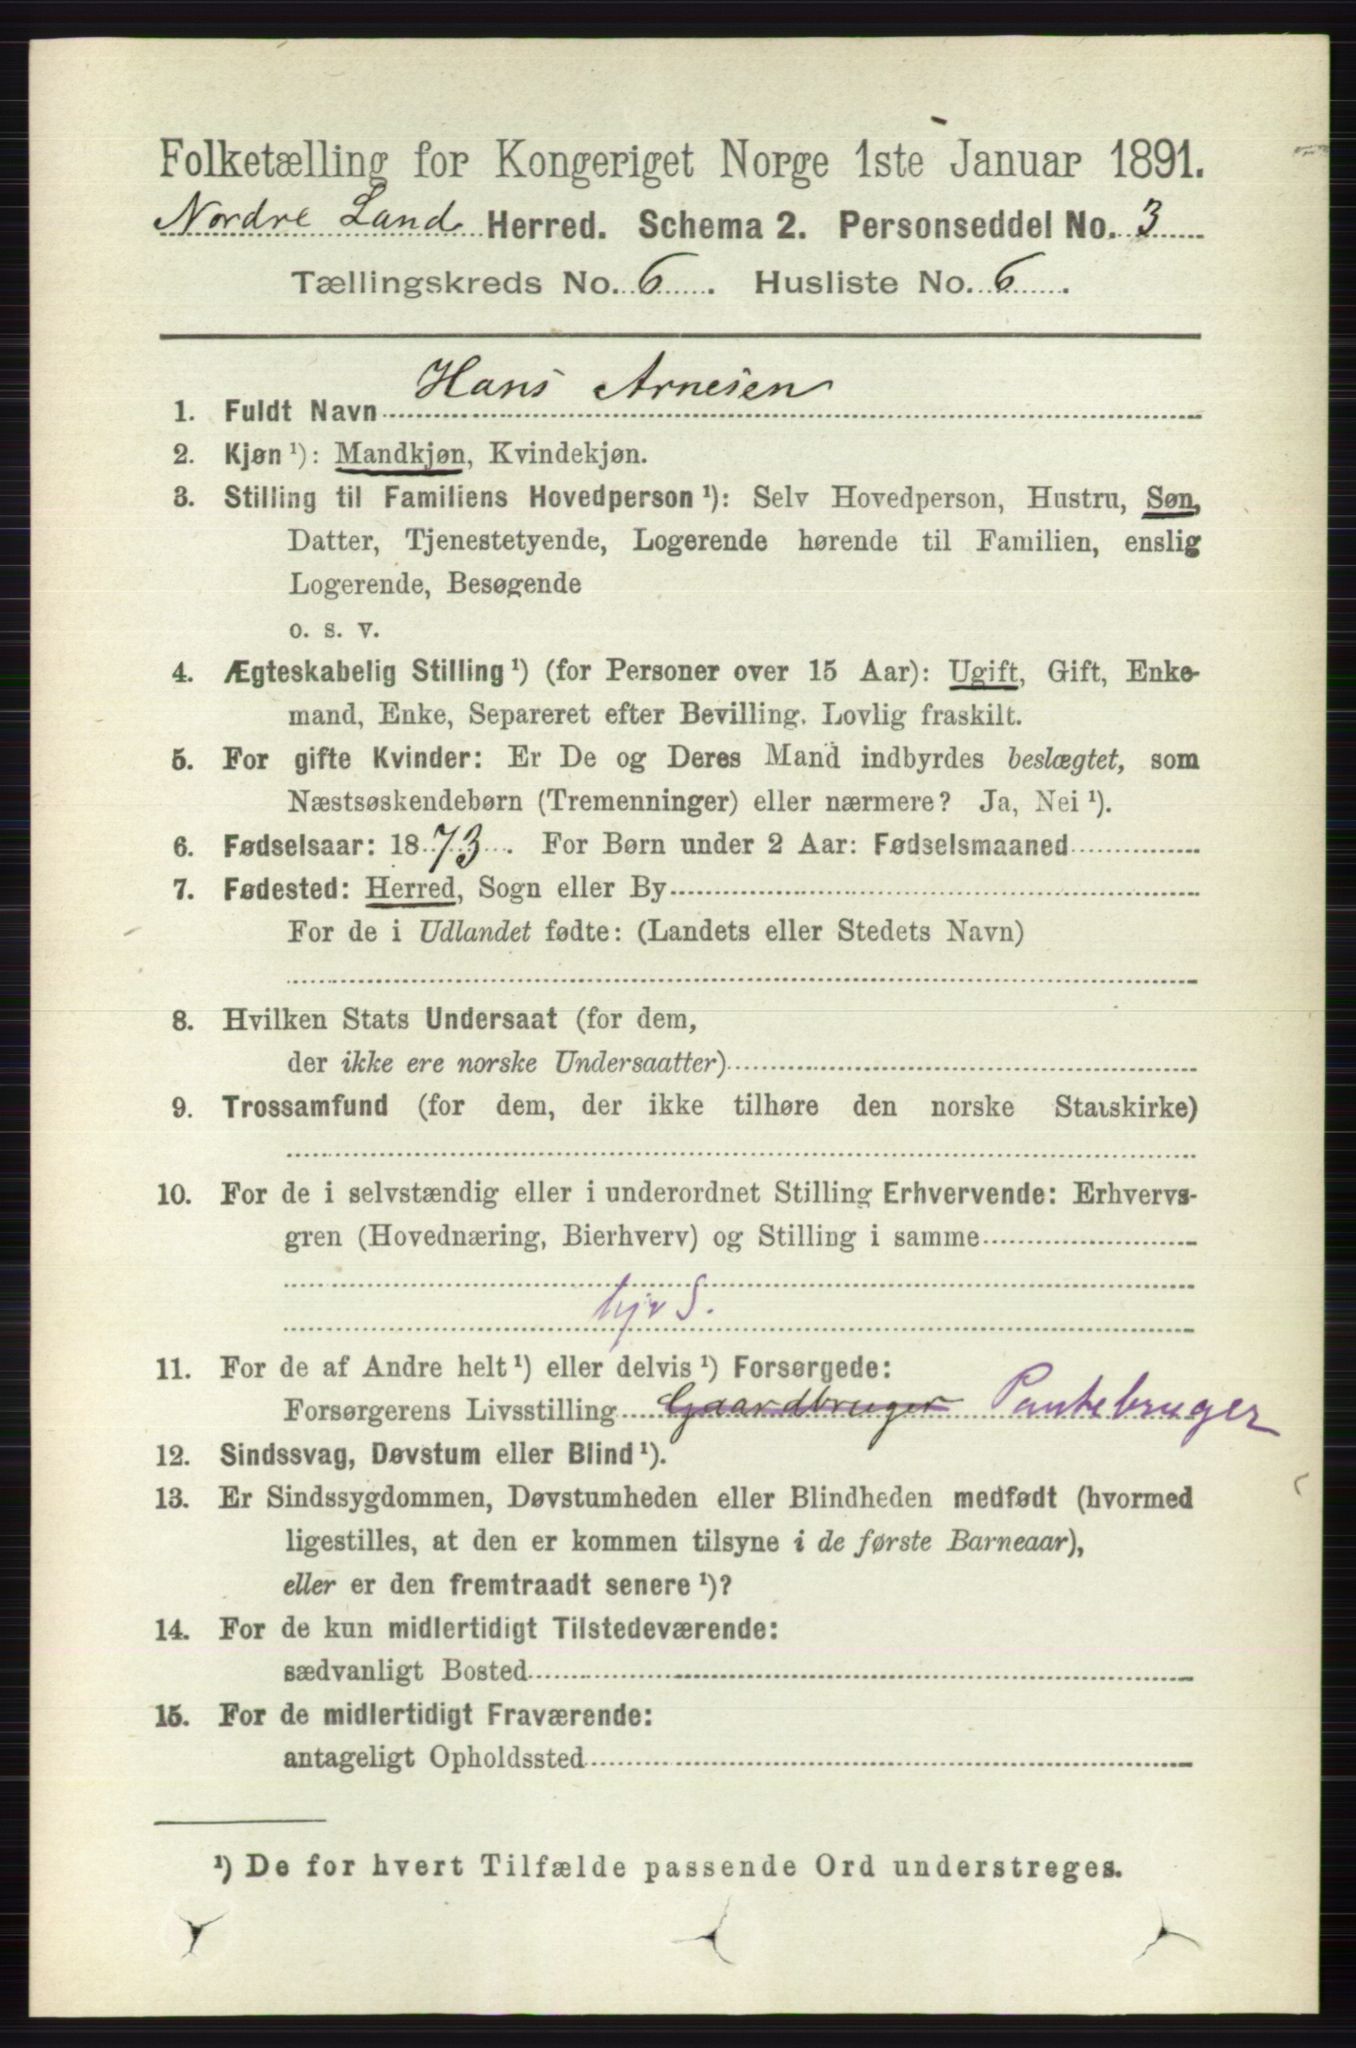 Folketælling for Kongeriget Norge 1ste Januar 1891.
Nordre Land Herred. Schema 2. Personseddel No. 3
Tællingskreds No. 6. Husliste No. 6.
1. Fuldt Navn Hans Arnesen
2. Kjøn ¹): Mandkjøn, Kvindekjøn.
3. Stilling til Familiens Hovedperson ¹): Selv Hovedperson, Hustru, Søn,
Datter, Tjenestetyende, Logerende hørende til Familien, enslig
Logerende, Besøgende
o. s. v.
4. Ægteskabelig Stilling ¹) (for Personer over 15 Aar): Ugift, Gift, Enke-
mand, Enke, Separeret efter Bevilling. Lovlig fraskilt.
5. For gifte Kvinder: Er De og Deres Mand indbyrdes beslægtet, som
Næstsøskendebørn (Tremenninger) eller nærmere? Ja, Nei ¹).
6. Fødselsaar: 1873. For Børn under 2 Aar: Fødselsmaaned
7. Fødested: Herred, Sogn eller By
For de i Udlandet fødte: (Landets eller Stedets Navn)
8. Hvilken Stats Undersaat (for dem,
der ikke ere norske Undersaatter)
9. Trossamfund (for dem, der ikke tilhøre den norske Statskirke)
10. For de i selvstændig eller i underordnet Stilling Erhvervende: Erhvervs-
gren (Hovednæring, Bierhverv) og Stilling i samme
11. For de af Andre helt ¹) eller delvis ¹) Forsørgede:
Forsørgerens Livsstilling Gaardbruger Pantebruger
12. Sindssvag, Døvstum eller Blind ¹).
13. Er Sindssygdommen, Døvstumheden eller Blindheden medfødt (hvormed
ligestilles, at den er kommen tilsyne i de første Barneaar),
eller er den fremtraadt senere ¹)?
14. For de kun midlertidigt Tilstedeværende:
sædvanligt Bosted
15. For de midlertidigt Fraværende:
antageligt Opholdssted
¹) De for hvert Tilfælde passende Ord understreges.